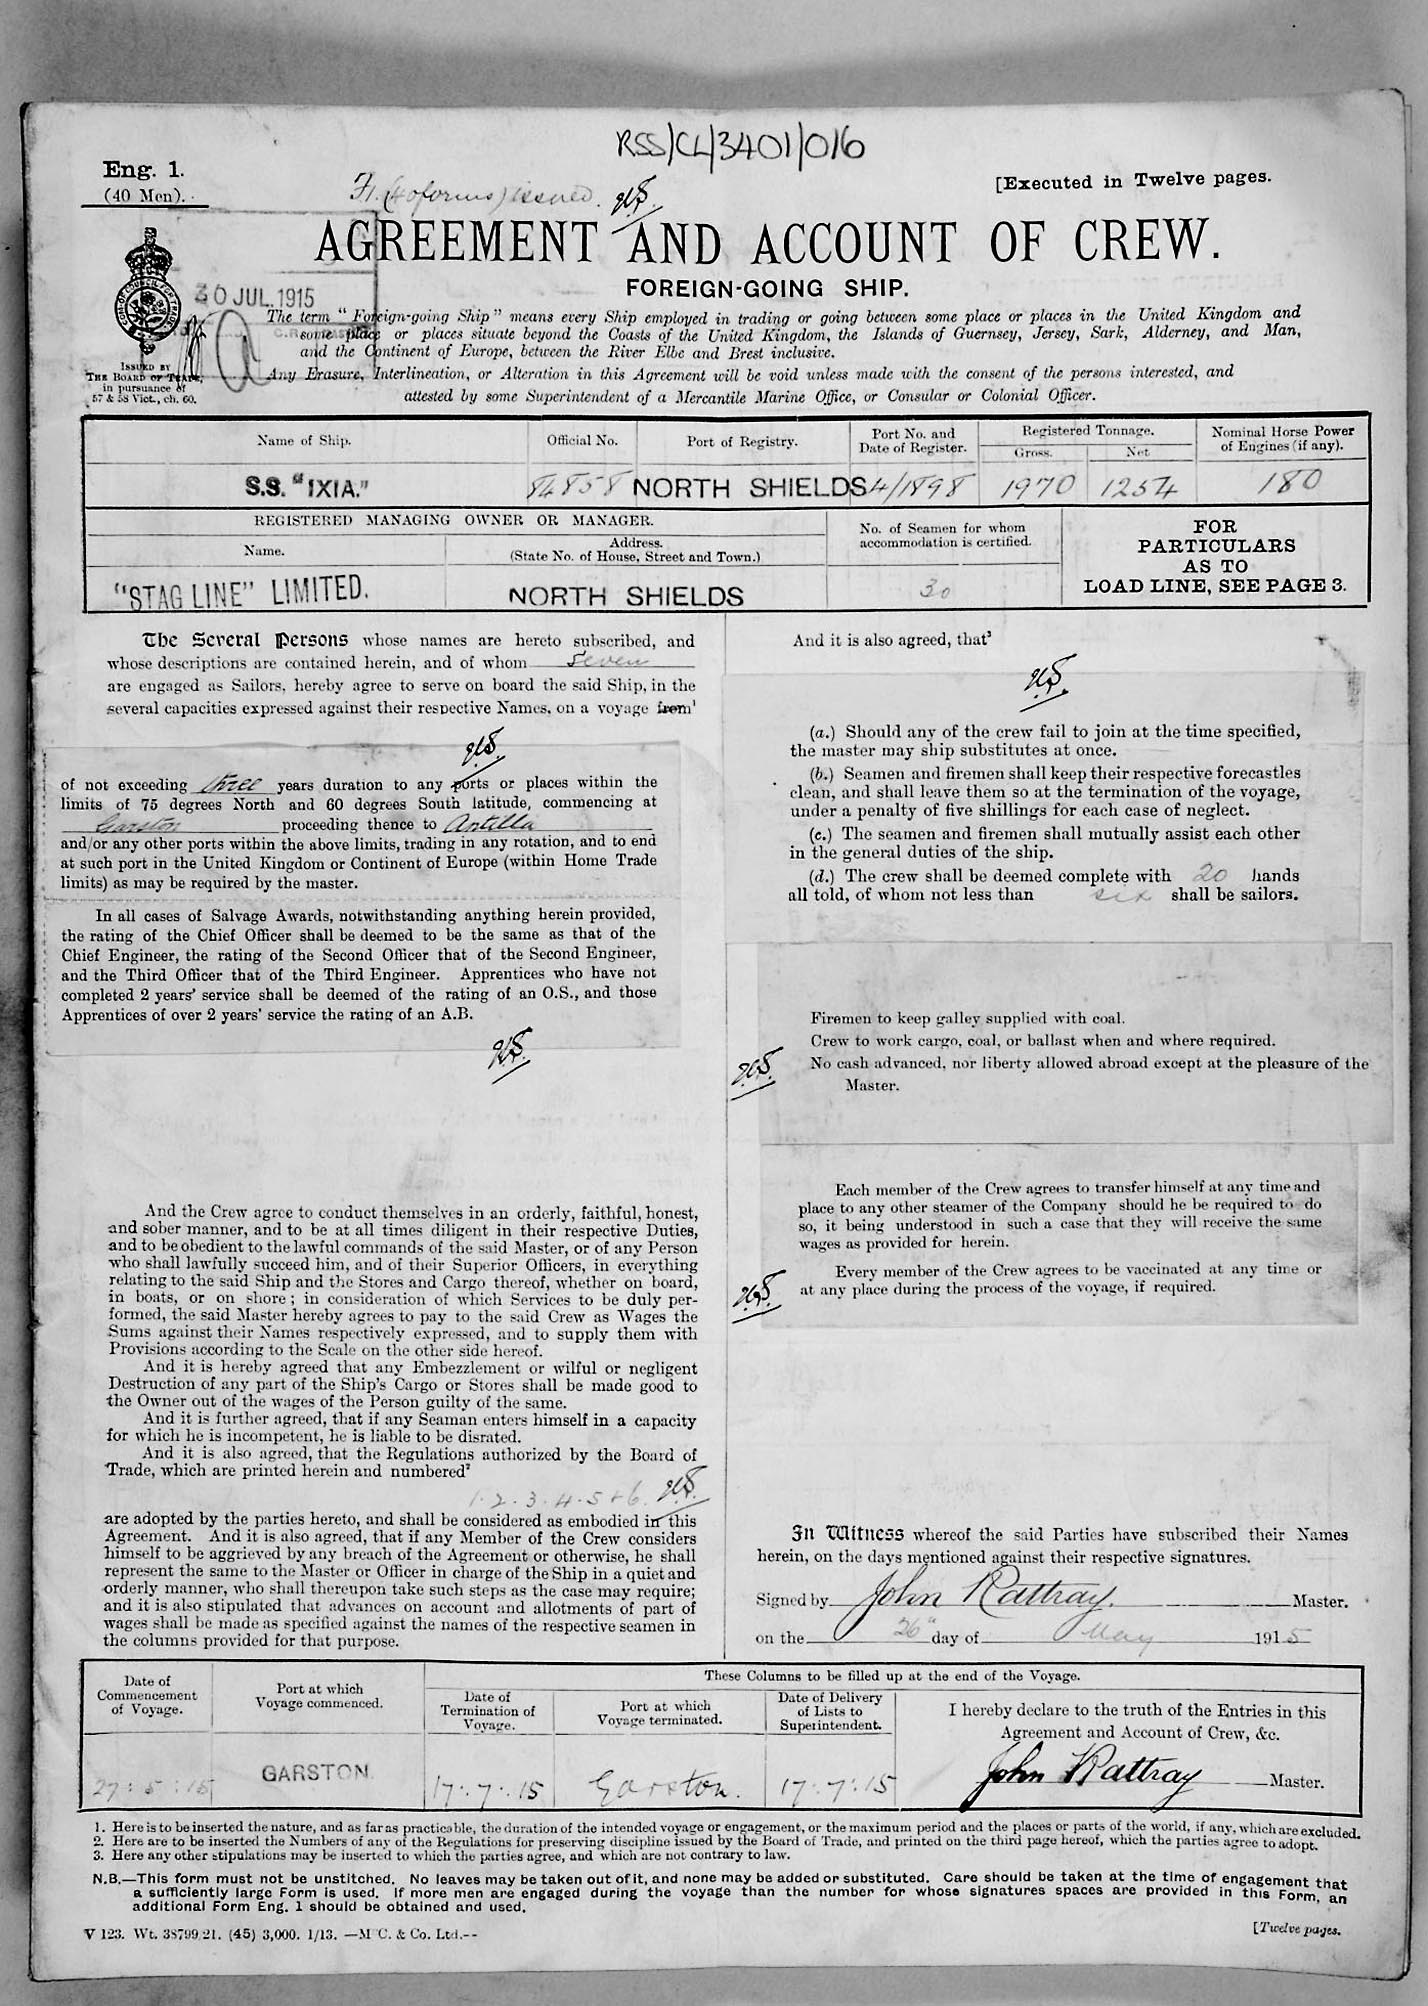 RSS/CL/3401/016
Eng. 1.
(40 Men).
F1. (40 forms) issued.
[Executed in Twelve pages.
AGREEMENT AND ACCOUNT OF CREW.
FOREIGN-GOING SHIP.
30 JUL. 1915
The term "Foreign-going Ship" means every Ship employed in trading or going between some place or places in the United Kingdom and
some place or places situate beyond the Coasts of the United Kingdom, the Islands of Guernsey, Jersey, Sark, Alderney, and Man,
and the Continent of Europe, between the River Elbe and Brest inclusive.
Any Erasure, Interlineation, or Alteration in this Agreement will be void unless made with the consent of the persons interested, and
attested by some Superintendent of a Mercantile Marine Office, or Consular or Colonial Officer.
ISSUED BY
THE BOARD OF TRADE,
in pursuance of
57 & 58 Vict., ch. 60.
Name of Ship.
Official No.
Port of Registry.
Port No. and
Date of Register.
Registered Tonnage.
Gross.
Net
Nominal Horse Power
of Engines (if any).
S.S. "IXIA."
84858
NORTH SHIELDS
4/1898
1970
1254
180
REGISTERED MANAGING OWNER OR MANAGER.
Name.
Address.
(State No. of House, Street and Town.)
No. of Seamen for whom
accommodation is certified.
FOR
PARTICULARS
AS TO
LOAD LINE, SEE PAGE 3.
"STAG LINE" LIMITED.
NORTH SHIELDS
30
The Several Persons whose names are hereto subscribed, and
whose descriptions are contained herein, and of whom Seven
are engaged as Sailors, hereby agree to serve on board the said Ship, in the
several capacities expressed against their respective Names, on a voyage from¹
of not exceeding three years duration to any ports or places within the
limits of 75 degrees North and 60 degrees South latitude, commencing at
Garston proceeding thence to Antilla
and/or any other ports within the above limits, trading in any rotation, and to end
at such port in the United Kingdom or Continent of Europe (within Home Trade
limits) as may be required by the master.
In all cases of Salvage Awards, notwithstanding anything herein provided,
the rating of the Chief Officer shall be deemed to be the same as that of the
Chief Engineer, the rating of the Second Officer that of the Second Engineer,
and the Third Officer that of the Third Engineer. Apprentices who have not
completed 2 years' service shall be deemed of the rating of an O.S., and those
Apprentices of over 2 years' service the rating of an A.B.
And the Crew agree to conduct themselves in an orderly, faithful, honest,
and sober manner, and to be at all times diligent in their respective Duties,
and to be obedient to the lawful commands of the said Master, or of any Person
who shall lawfully succeed him, and of their Superior Officers, in everything
relating to the said Ship and the Stores and Cargo thereof, whether on board,
in boats, or on shore; in consideration of which Services to be duly per-
formed, the said Master hereby agrees to pay to the said Crew as Wages the
Sums against their Names respectively expressed, and to supply them with
Provisions according to the Scale on the other side hereof.
And it is hereby agreed that any Embezzlement or wilful or negligent
Destruction of any part of the Ship's Cargo or Stores shall be made good to
the Owner out of the wages of the Person guilty of the same.
And it is further agreed, that if any Seaman enters himself in a capacity
for which he is incompetent, he is liable to be disrated.
And it is also agreed, that the Regulations authorized by the Board of
Trade, which are printed herein and numbered²
1. 2. 3. 4. 5 + 6.
are adopted by the parties hereto, and shall be considered as embodied in this
Agreement. And it is also agreed, that if any Member of the Crew considers
himself to be aggrieved by any breach of the Agreement or otherwise, he shall
represent the same to the Master or Officer in charge of the Ship in a quiet and
orderly manner, who shall thereupon take such steps as the case may require;
and it is also stipulated that advances on account and allotments of part of
wages shall be made as specified against the names of the respective seamen in
the columns provided for that purpose.
And it is also agreed, that³
(a.) Should any of the crew fail to join at the time specified,
the master may ship substitutes at once.
(b.) Seamen and firemen shall keep their respective forecastles
clean, and shall leave them so at the termination of the voyage,
under a penalty of five shillings for each case of neglect.
(c.) The seamen and firemen shall mutually assist each other
in the general duties of the ship.
(d.) The crew shall be deemed complete with 20 hands
all told, of whom not less than six shall be sailors.
Firemen to keep galley supplied with coal.
Crew to work cargo, coal, or ballast when and where required.
No cash advanced, nor liberty allowed abroad except at the pleasure of the
Master.
Each member of the Crew agrees to transfer himself at any time and
place to any other steamer of the Company should he be required to do
so, it being understood in such a case that they will receive the same
wages as provided for herein.
Every member of the Crew agrees to be vaccinated at any time or
at any place during the process of the voyage, if required.
In Witness whereof the said Parties have subscribed their Names
herein, on the days mentioned against their respective signatures.
Signed by John Rattray. Master.
on the 26th day of May 1915
Date of
Commencement
of Voyage.
Port at which
Voyage commenced.
These Columns to be filled up at the end of the Voyage.
Date of
Termination of
Voyage.
Port at which
Voyage terminated.
Date of Delivery
of Lists to
Superintendent.
I hereby declare to the truth of the Entries in this
Agreement and Account of Crew, &c.
27:5:15
GARSTON
17.7.15
Garston.
17.7.15
John Rattray Master.
1. Here is to be inserted the nature, and as far as practicable, the duration of the intended voyage or engagement, or the maximum period and the places or parts of the world, if any, which are excluded.
2. Here are to be inserted the Numbers of any of the Regulations for preserving discipline issued by the Board of Trade, and printed on the third page hereof, which the parties agree to adopt.
3. Here any other stipulations may be inserted to which the parties agree, and which are not contrary to law.
N.B.—This form must not be unstitched. No leaves may be taken out of it, and none may be added or substituted. Care should be taken at the time of engagement that
a sufficiently large Form is used. If more men are engaged during the voyage than the number for whose signatures spaces are provided in this Form, an
additional Form Eng. 1 should be obtained and used.
V 123. Wt. 38799/21. (45) 3,000. 1/13. —McC. & Co. Ltd.--
[Twelve pages.